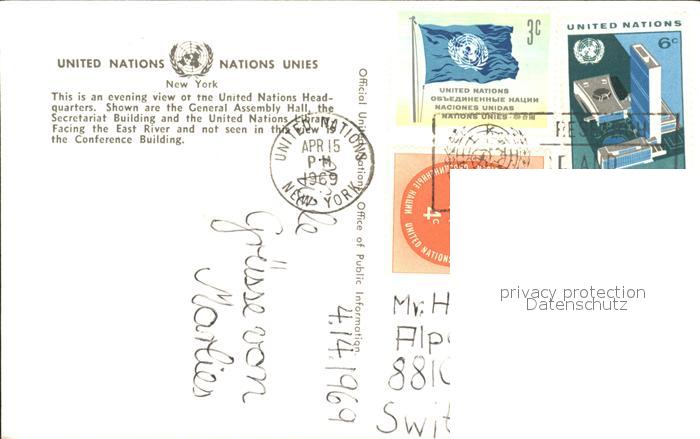 UNITED NATIONS NATIONS UNIES
New York
This is an evening view of the United Nations Head-
quarters. Shown are the General Assembly Hall, the
Secretariat Building and the United Nations Library.
Facing the East River and not seen in this view is
the Conference Building.
Official United Nations Office of Public Information.
UNITED NATIONS
APR 15
P M
1969
NEW YORK
3c
UNITED NATIONS
ОБЪЕДИНЕННЫЕ НАЦИИ
NACIONES UNIDAS
NATIONS UNIES
UNITED NATIONS
6c
4c
UNITED NATIONS
4.14.1969
Grüsse von
Marlies
Mr. H
Alp
881
Swit
privacy protection
Datenschutz